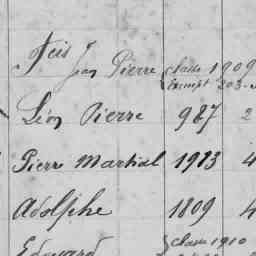 Jean Pierre classe 1909
exempt 203
Léon Pierre 987 2
Pierre Martial 1973 4
Adolphe 1809 4
Edouard classe 1910